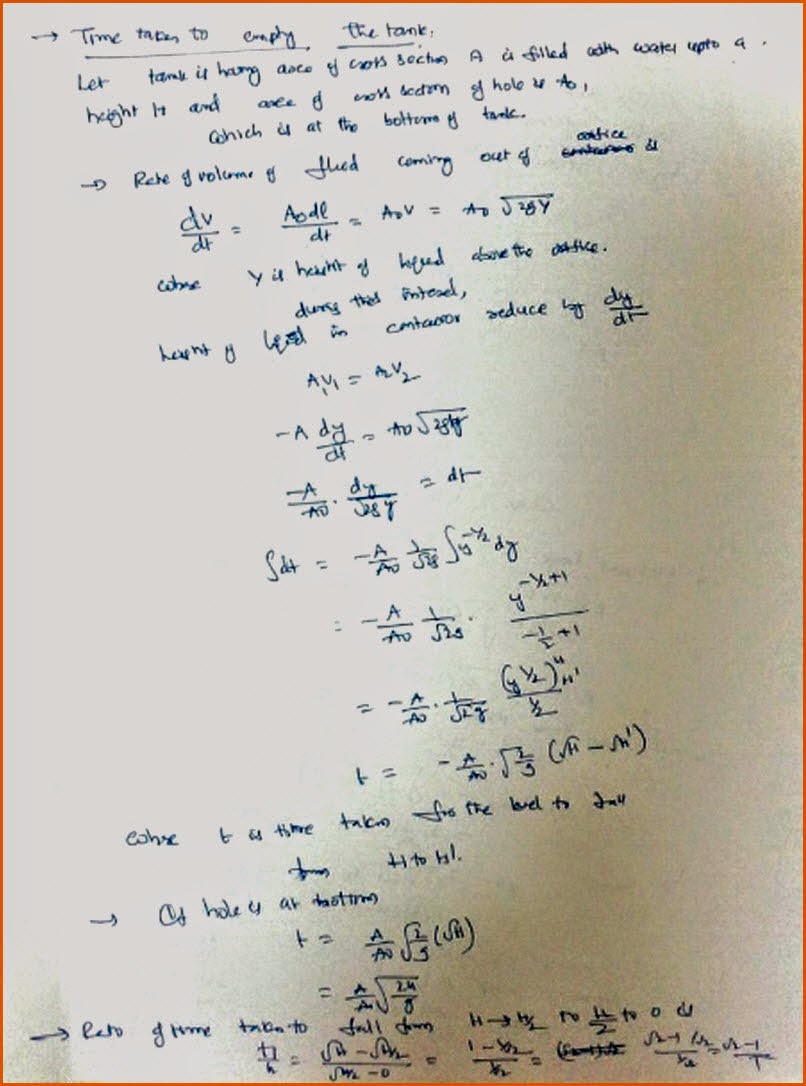 → Time taken to empty the tank,
Let tank is having area of cross section A is filled with water upto a
height H and area of cross section of hole is A₀,
which is at the bottom of tank.
→ Rate of volume of fluid coming out of orifice is
dv/dt = A₀dl/dt = A₀V = A₀ √2gy
where y is height of liquid above the orifice.
during this interval,
height of liquid in container reduce by dy/dt
A₁V₁ = A₂V₂
-A dy/dt = A₀ √2gy
-A/A₀ . dy/√2gy = dt
∫dt = -A/A₀ 1/√2g ∫y^-1/2 dy
= -A/A₀ 1/√2g . y^(-1/2+1)/(-1/2+1)
= -A/A₀ . 1/√2g (y^1/2)/(1/2) H H'
t = -A/A₀ . √2/g (√H - √H')
where t is time taken for the level to fall
from H to H'.
→ If hole is at bottom
t = A/A₀ √2/g (√H)
= A/A₀ √2H/g
→ Ratio of time taken to fall from H → H/2 to H/2 to 0 is
= (√H - √H/2)/(√H/2 - 0) = (1 - 1/√2)/(1/√2) = = √2-1/1